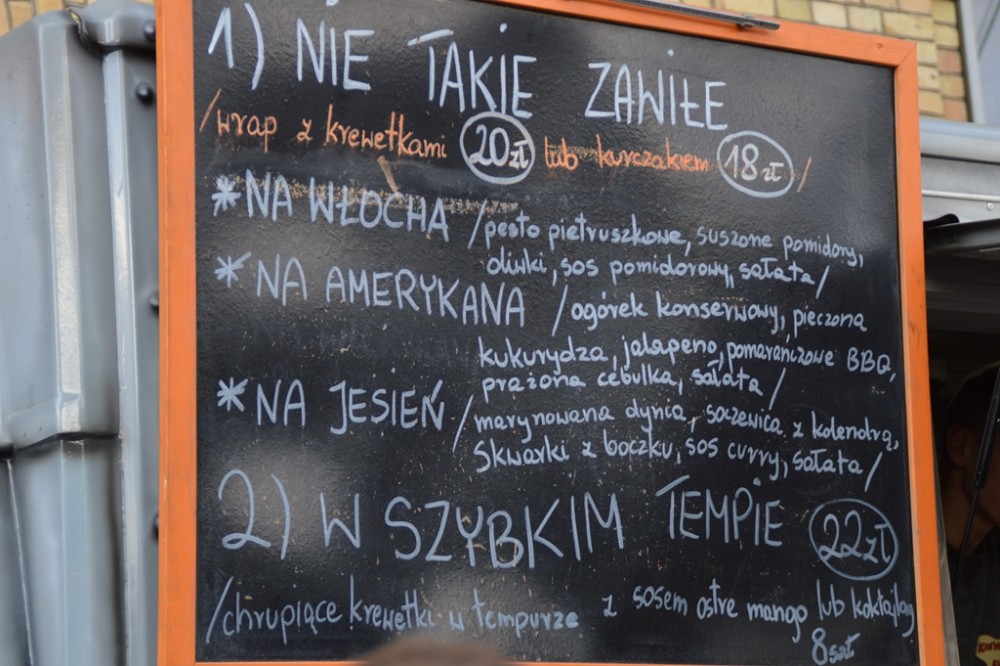 1) NIE TAKIE ZAWIŁE
/wrap z krewetkami 20zł lub kurczakiem 18zł /
*NA WŁOCHA /pesto pietruszkowe, suszone pomidory,
oliwki, sos pomidorowy, sałata/
*NA AMERYKANA /ogórek konserwowy, pieczona
kukurydza, jalapeno, pomarańczowe BBQ,
prażona cebulka, sałata/
*NA JESIEŃ /marynowana dynia, soczewica z kolendrą,
skwarki z boczku, sos curry, sałata/
2) W SZYBKIM TEMPIE 22zł
/chrupiące krewetki w tempurze z sosem ostre mango lub koktajlowy
8szt